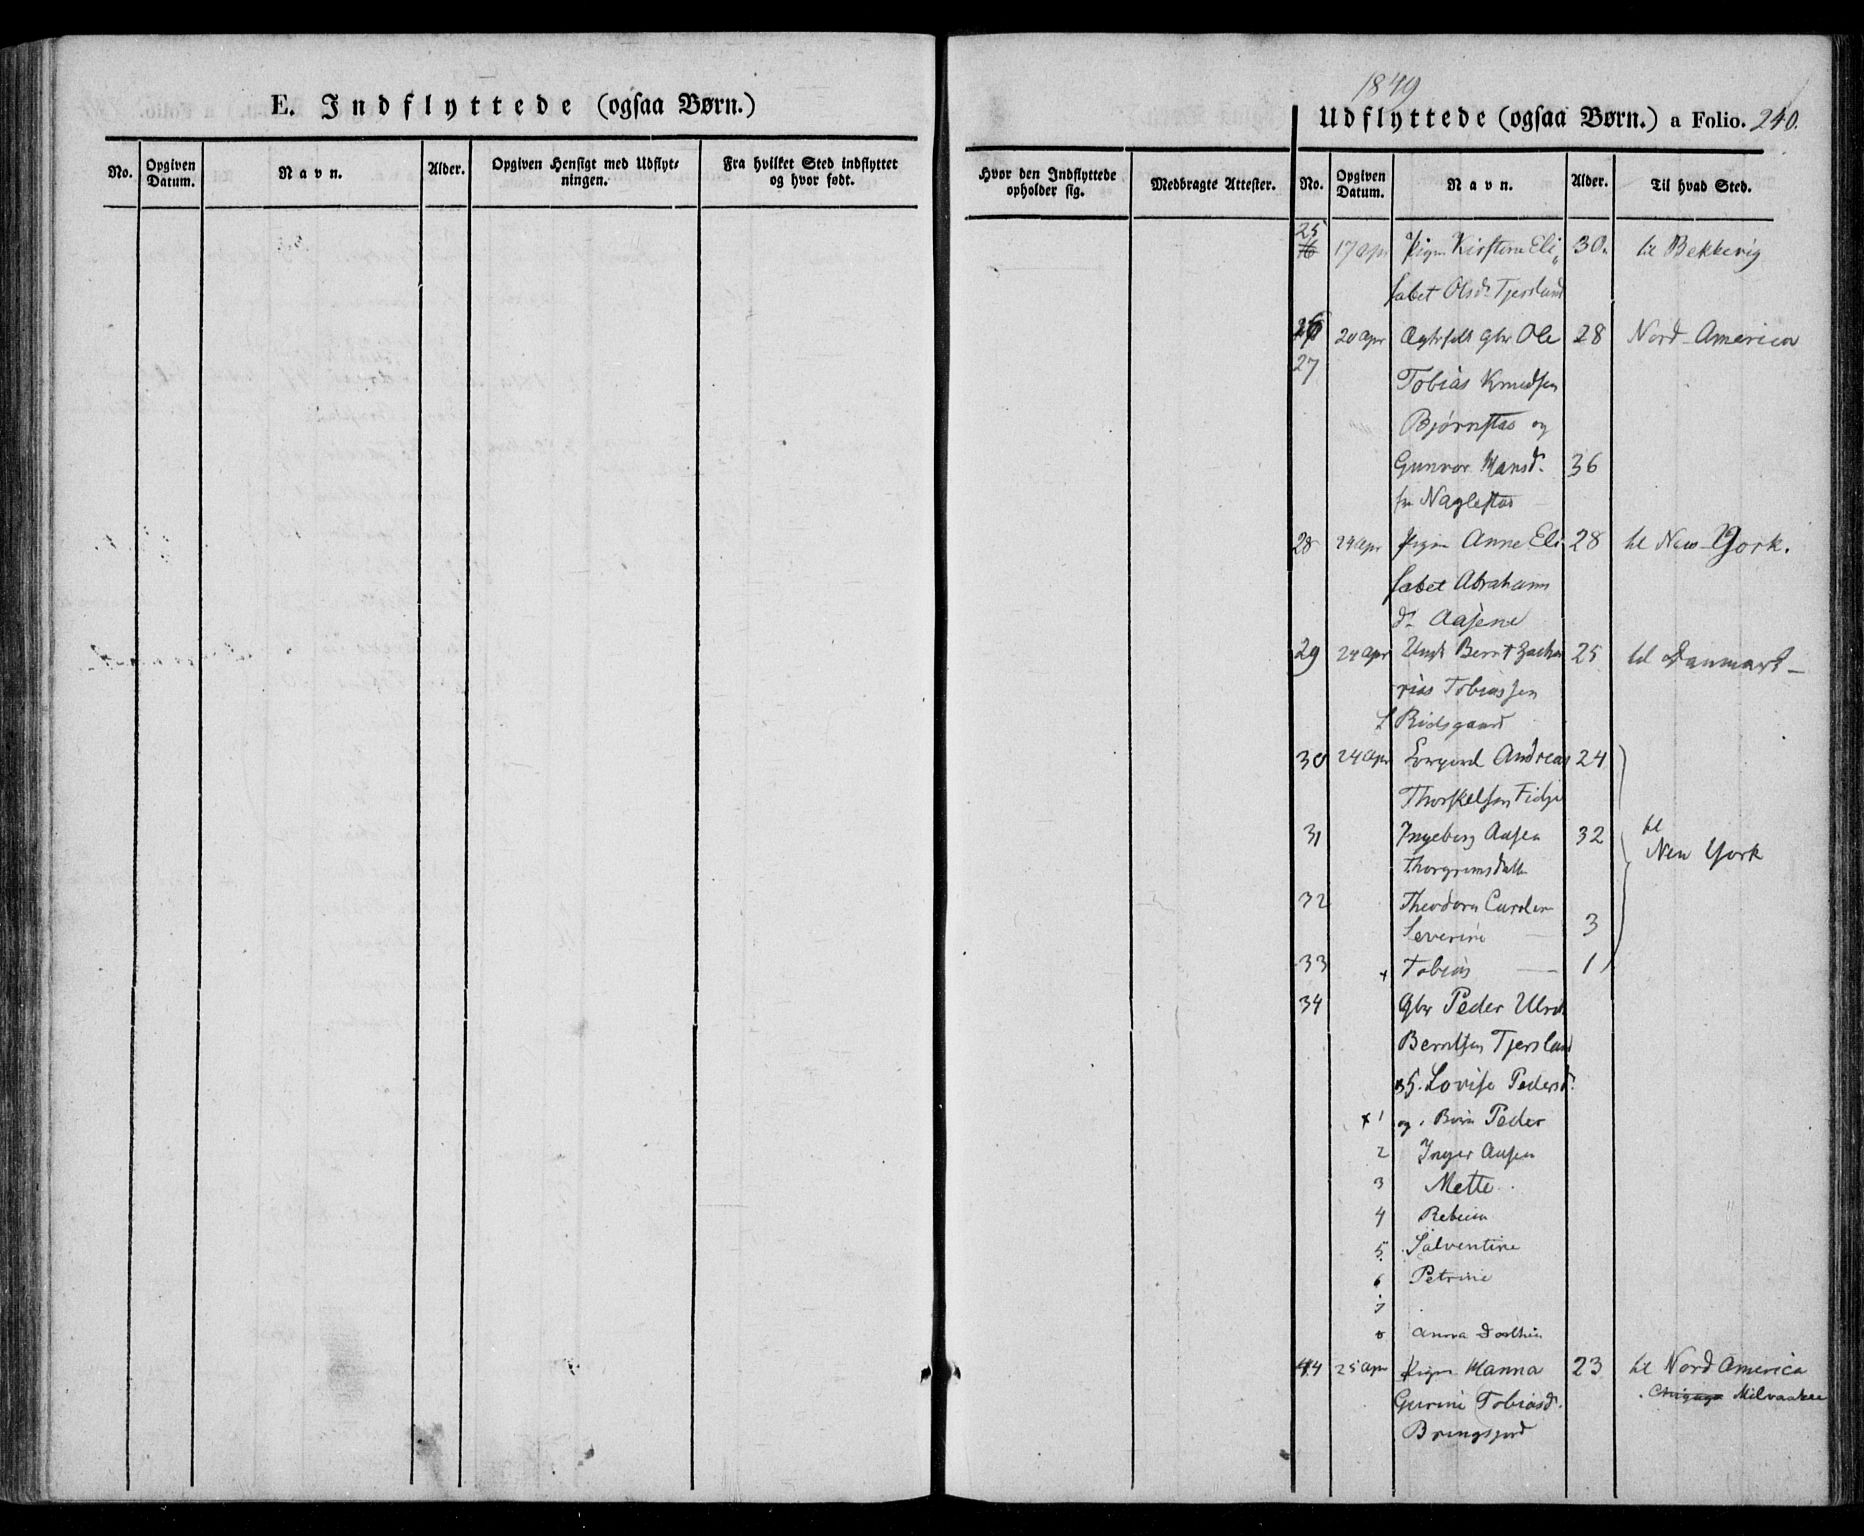 E. Indflyttede (ogsaa Børn.)
No. Opgiven Datum. Navn. Alder. Opgiven Hensigt med Udflyt-
ningen. Fra hvilket Sted indflyttet
og hvor født.
1849
Udflyttede (ogsaa Børn.) a Folio. 240.
Hvor den Indflyttede
opholder sig. Medbragte Attester. No. Opgiven Datum. Navn. Alder. Til hvad Sted.
25 17 apr Pigen Kirstine Eli 30. til Bekkevig
sabet Olsd. Tjersland
26 20 apr Ole 28 Nord-America
27 Tobias Knudsen
Bjørnstad og
Gunvor Hansd. 36
Naglestad
28 24 apr Pigen Anne Eli 28 til New-York.
sabet Abrahams
d. Aasene
29 24 apr Ungk Bernt Zacha 25 til Danmark
rias Tobiassen
Risdsgaard
30 24 apr Andreas 24
Thorkelsen Fidje
31 Ingeborg Aasen 32 til
Thorgrimsdatter New York
32 Theodora
Severine 3
33 Tobias 1
34 Gbr Peder Ulrik
Berntsen Tjersland
35. Lovise Pedersd.
1 og Børn Peder
2 Inger
3 Mette
4 Rebecca
5 Salventine
6 Petrine
7
8 Anna Dorthea
44 25 apr Pigen Hanna 23 til Nord America
Gurine Tobiasd. Chigago Milvaakee
Bringsjord